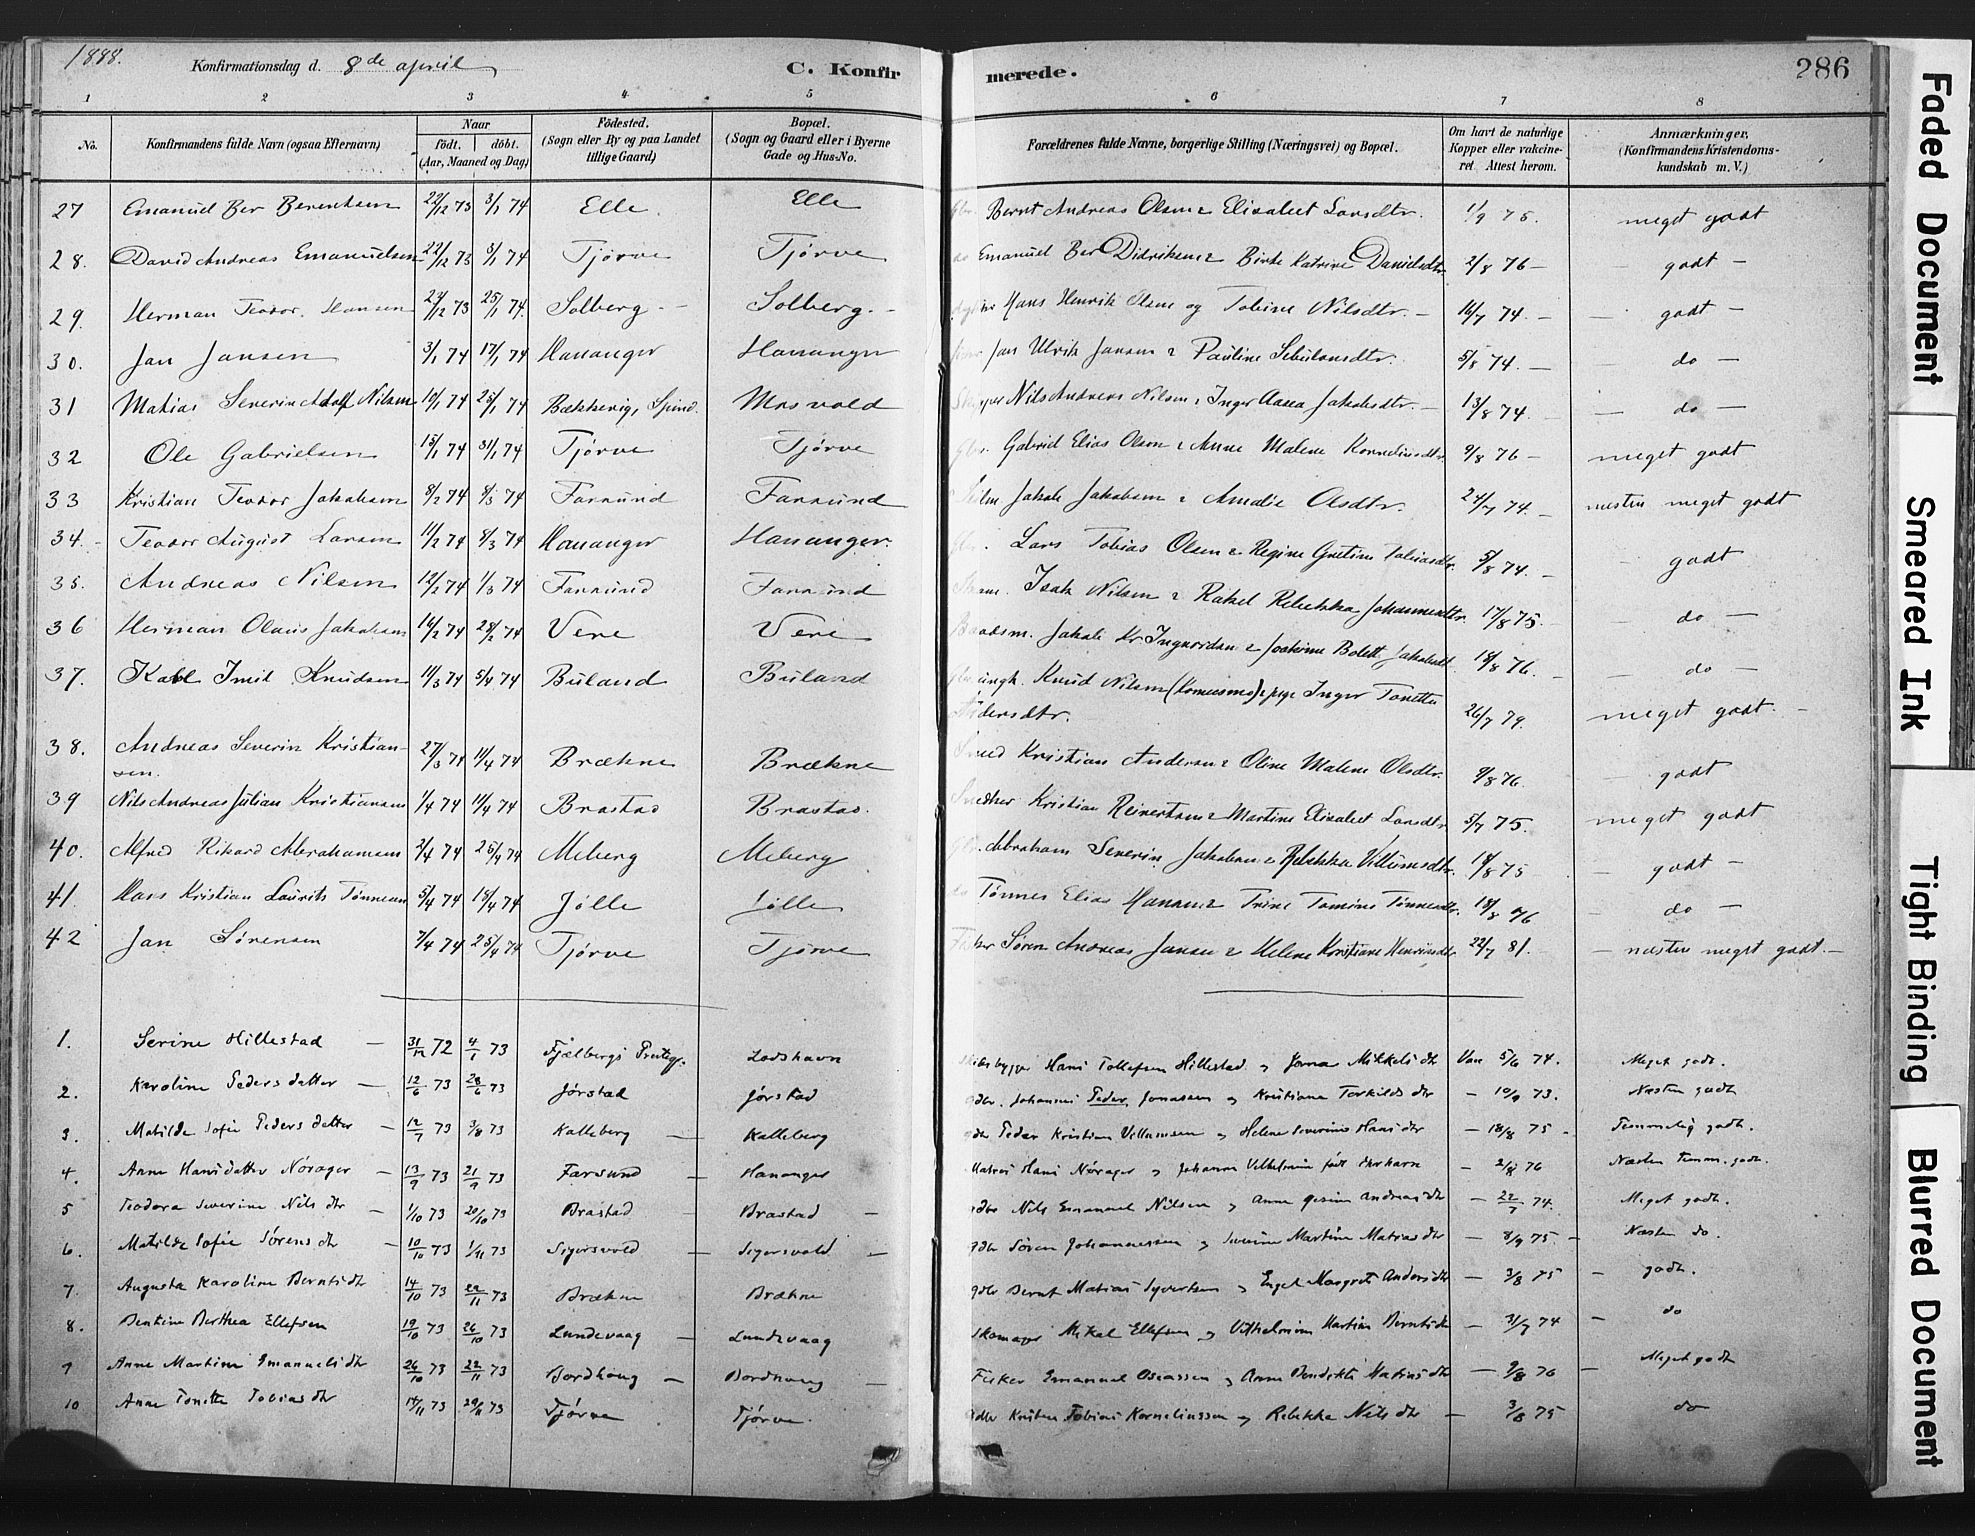 1888. Konfirmationsdag d. 8de april C. Konfirmerede. 286
1 2 3 4 5 6 7 8
No. Konfirmandens fulde Navn (ogsaa Efternavn) Naar födt. döbt. (Aar, Maaned og Dag) Födested. (Sogn eller By og paa Landet tillige Gaard) Bopæl. (Sogn og Gaard eller i Byerne Gade og Hus-No. Forældrenes fulde Navne, borgerlige Stilling (Næringsvei) og Bopæl. Om havt de naturlige Kopper eller vakcineret. Attest herom. Anmærkninger. (Konfirmandens Kristendomskundskab m. V.)
27 Emanuel Ber Berentsen 22/12 73 3/1 74 Elle. Elle Gbr. Bernt Andreas Olsen & Elisabet Larsdtr. 1/9 75. meget godt
28. David Andreas Emanuelsen 22/12 73 3/1 74 Tjørve Tjørve do Emanuel Ber Didriksen & Birte Katrine Danielsdtr. 2/8 76 — — godt —
29. Herman Teodor Hansen 12 73 25/1 74. Solberg — Solberg. — Hans Henrik Olsen og Tobine Nilsdtr. — 16/7 74. — — godt —
30. Jan Jansen 3/1 74 17/1 74 Hananger Hananger Jan Ulrik Jansen & Pauline 5/8 74. — do —
31 Matias Severin Adolf Nilsen 10/1 74 25/1 74 Bækkevig, Spind. Mosvold Skipper Nils Andreas Nilsen & Inger Aasea Jakobsdtr. — 13/8 74. — — do —
32 Ole Gabrielsen 15/1 74 31/1 74 Tjørve Tjørve Gbr. Gabriel Elias Olsen & Anne Malene Korneliusdtr. 9/8 76 — meget godt
33 Kristian Teodor Jakobsen 8/2 74 8/3 74 Farsund Farsund Jakob Jakobsen & Amalie Olsdtr. 24/7 74. — næsten meget godt
34. Teodor August Larsen 11/2 74 8/3 74 Hananger Hananger. Gbr. Lars Tobias Olsen & Regine Gretine Tobiasdtr. 5/8 74. — — godt
35. Andreas Nilsen 12/2 74 1/3 74 Farsund Farsund Isak Nilsen & Rakel Rebekka Johannesdtr. 17/8 75. — — do —
36 Herman Olaus Jakobsen 16/2 74 28/2 74 Vere Vere Baadsm. Jakob Kr Ingvordsen & Joakime Bolett Jakobsdtr. 18/8 76. — — do —
37. Karl Emil Knudsen 11/3 74 5/4 74 Buland Buland ungk. Knud Nilsen & pige Inger Tonette
Andersdtr. 26/7 79. meget godt. —
38. Andreas Severin Kristian-
sen. 27/3 74 11/4 74 Brækne Brækne Smed Kristian Andersen & Oline Malene Olsdtr. 9/8 76. — godt
39 Nils Andreas Julian Kristiansen 1/4 74 11/4 74 Brastad Brastad. Snedker Kristian Reinertsen & Martine Elisabet Larsdtr. 5/7 75. meget godt
40. Alfred Rikard Abrahamsen 2/4 74 25/4 74 Meberg Meberg Gbr. Abraham Severin Jakobsen & Rebekka Villumsdtr. 14/8 75 — godt —
41. Hans Kristian Laurits Tønnesen 5/4 74 18/4 74 Jølle Jølle do Tønnes Elias Hansen & Trine Tomine Tønnesdtr. 18/8 76 — do —
42 Jan Sørensen 7/4 74 25/4 74 Tjørve Tjørve Fisker Søren Andreas Jansen & Helene Kristiane Henriksdtr. 22/7 81. — næsten meget godt. —
1. Serine Hillestad — 31/12 72 4/1 73 Fjelbergs Prstgj. Loshavn Skibsbygger Hans Tollefsen Hillestad og Jorna Mikkelsdtr Vac 5/6 74. Meget godt.
2. Karoline Pedersdatter — 12/6 73 28/6 73 Jørstad Jørstad gdbr. Johannes Peder Jonassen og Kristiana Torkildsdtr — 10/9 73. Næsten godt
3. Matilde Sofie Pedersdatter — 12/7 73 3/8 73 Kalleberg — Kalleberg gdbr Peder Kristian Villumsen og Helene Severine Hansdtr — 18/8 75 — Temmelig godt.
4. Anne Hansdatter Nørager — 13/9 73 21/9 73 Farsund — Hananger Matros Hans Nørager og Johanna Vilhelmine født — 2/8 76 Næsten temm. godt.
5 Teodora Severine Nilsdtr — 1/10 73 20/10 73 Brastad — Brastad — gdbr Nils Emanuel Nilsen og Anne Gesine Andreasdtr — 22/7 74. Meget godt.
6. Matilde Sofie Sørensdtr — 10/10 73 1/11 73 Sigersvold — Sigersvold — gdbr Søren Johannessen og Severine Martine Matiasdtr — 8/9 75 — Næsten do.
7 Augusta Karoline Berntsdtr 14/10 73 22/11 73 Brækne Brækne gdbr Bernt Matias Syvertsen og Engel Margrete Andersdtr — 3/8 75 — godt.
8. Bentine Berthea Ellefsen 19/10 73 26/10 73 Lundevaag — Lundevaag Skomager Mikal Ellefsen og Vilhelmine Martine Berntsdtr — 31/7 74 — do
9 Anne Martine Emanuelsdtr 26/10 73 22/11 73 Bordhoug — Bordhoug — Fisker Emanuel Oseassen og Anne Bendikte Matiasdtr — 9/8 76 — Meget godt
10 Anne Tonette Tobiasdtr 14/11 73 29/11 73 Tjørve Tjørve. gdbr Kristen Tobias Korneliussen og Rebekka Nilsdtr — 3/8 75 do
Faded Document
Smeared Ink
Tight Binding
Blurred Document